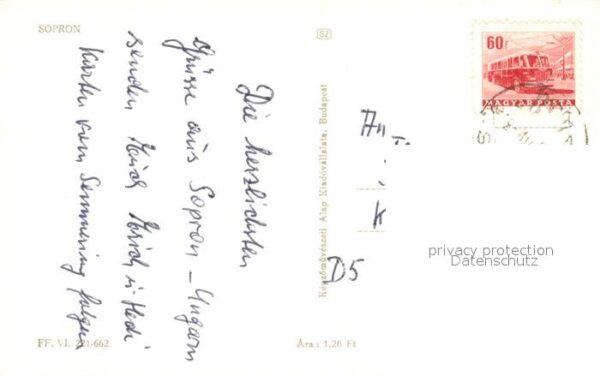 SOPRON
SZ
Die herzlichsten
Grüsse aus Sopron – Ungarn
senden Euch Erich u. Hedi
Karten vom Semmering folgen
FF. VI. 221-662
Ára: 1,20 Ft
Képzőművészeti Alap Kiadóvállalata, Budapest
60f
MAGYAR POSTA
An
K
D5
privacy protection
Datenschutz